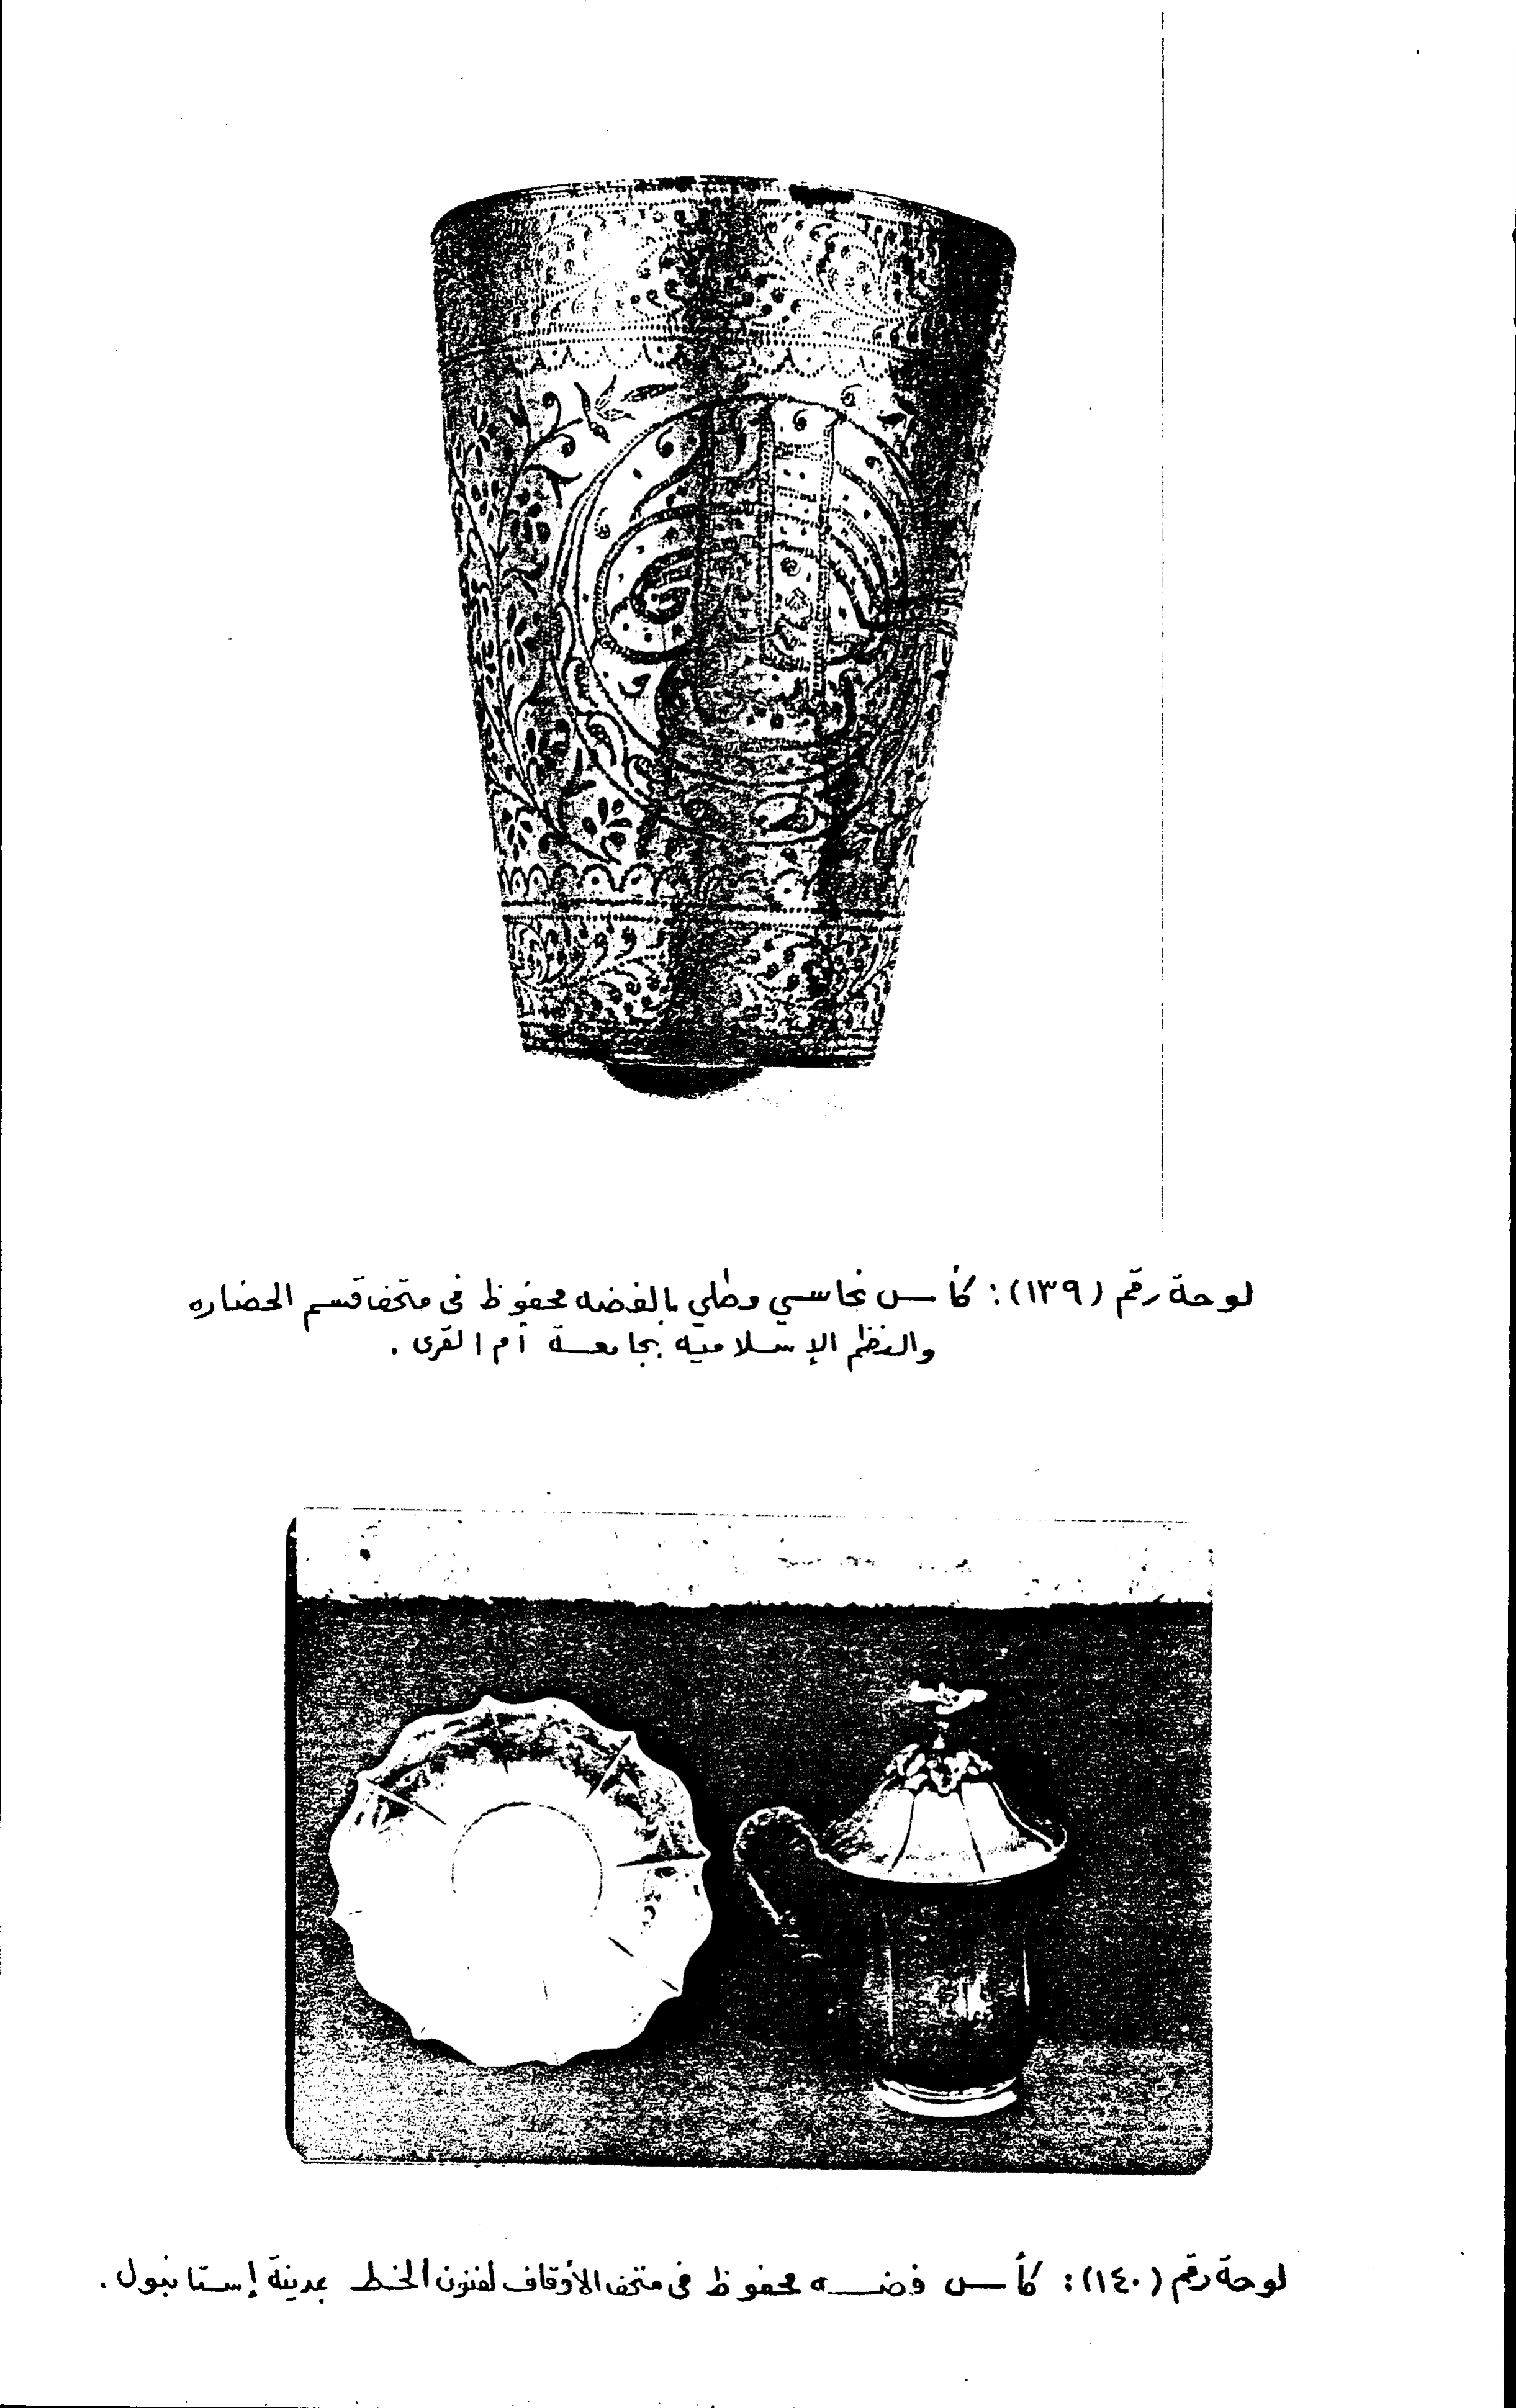 لوحة رقم (١٣٩): كأس نحاسي مطلي بالفضه محفوظ في متحف قسم الحضاره
والنظم الإسلاميه بجامعة أم القرى .
لوحة رقم (١٤٠): كأس فضه محفوظ في متحف الأوقاف لفنون الخط بمدينة إستانبول .